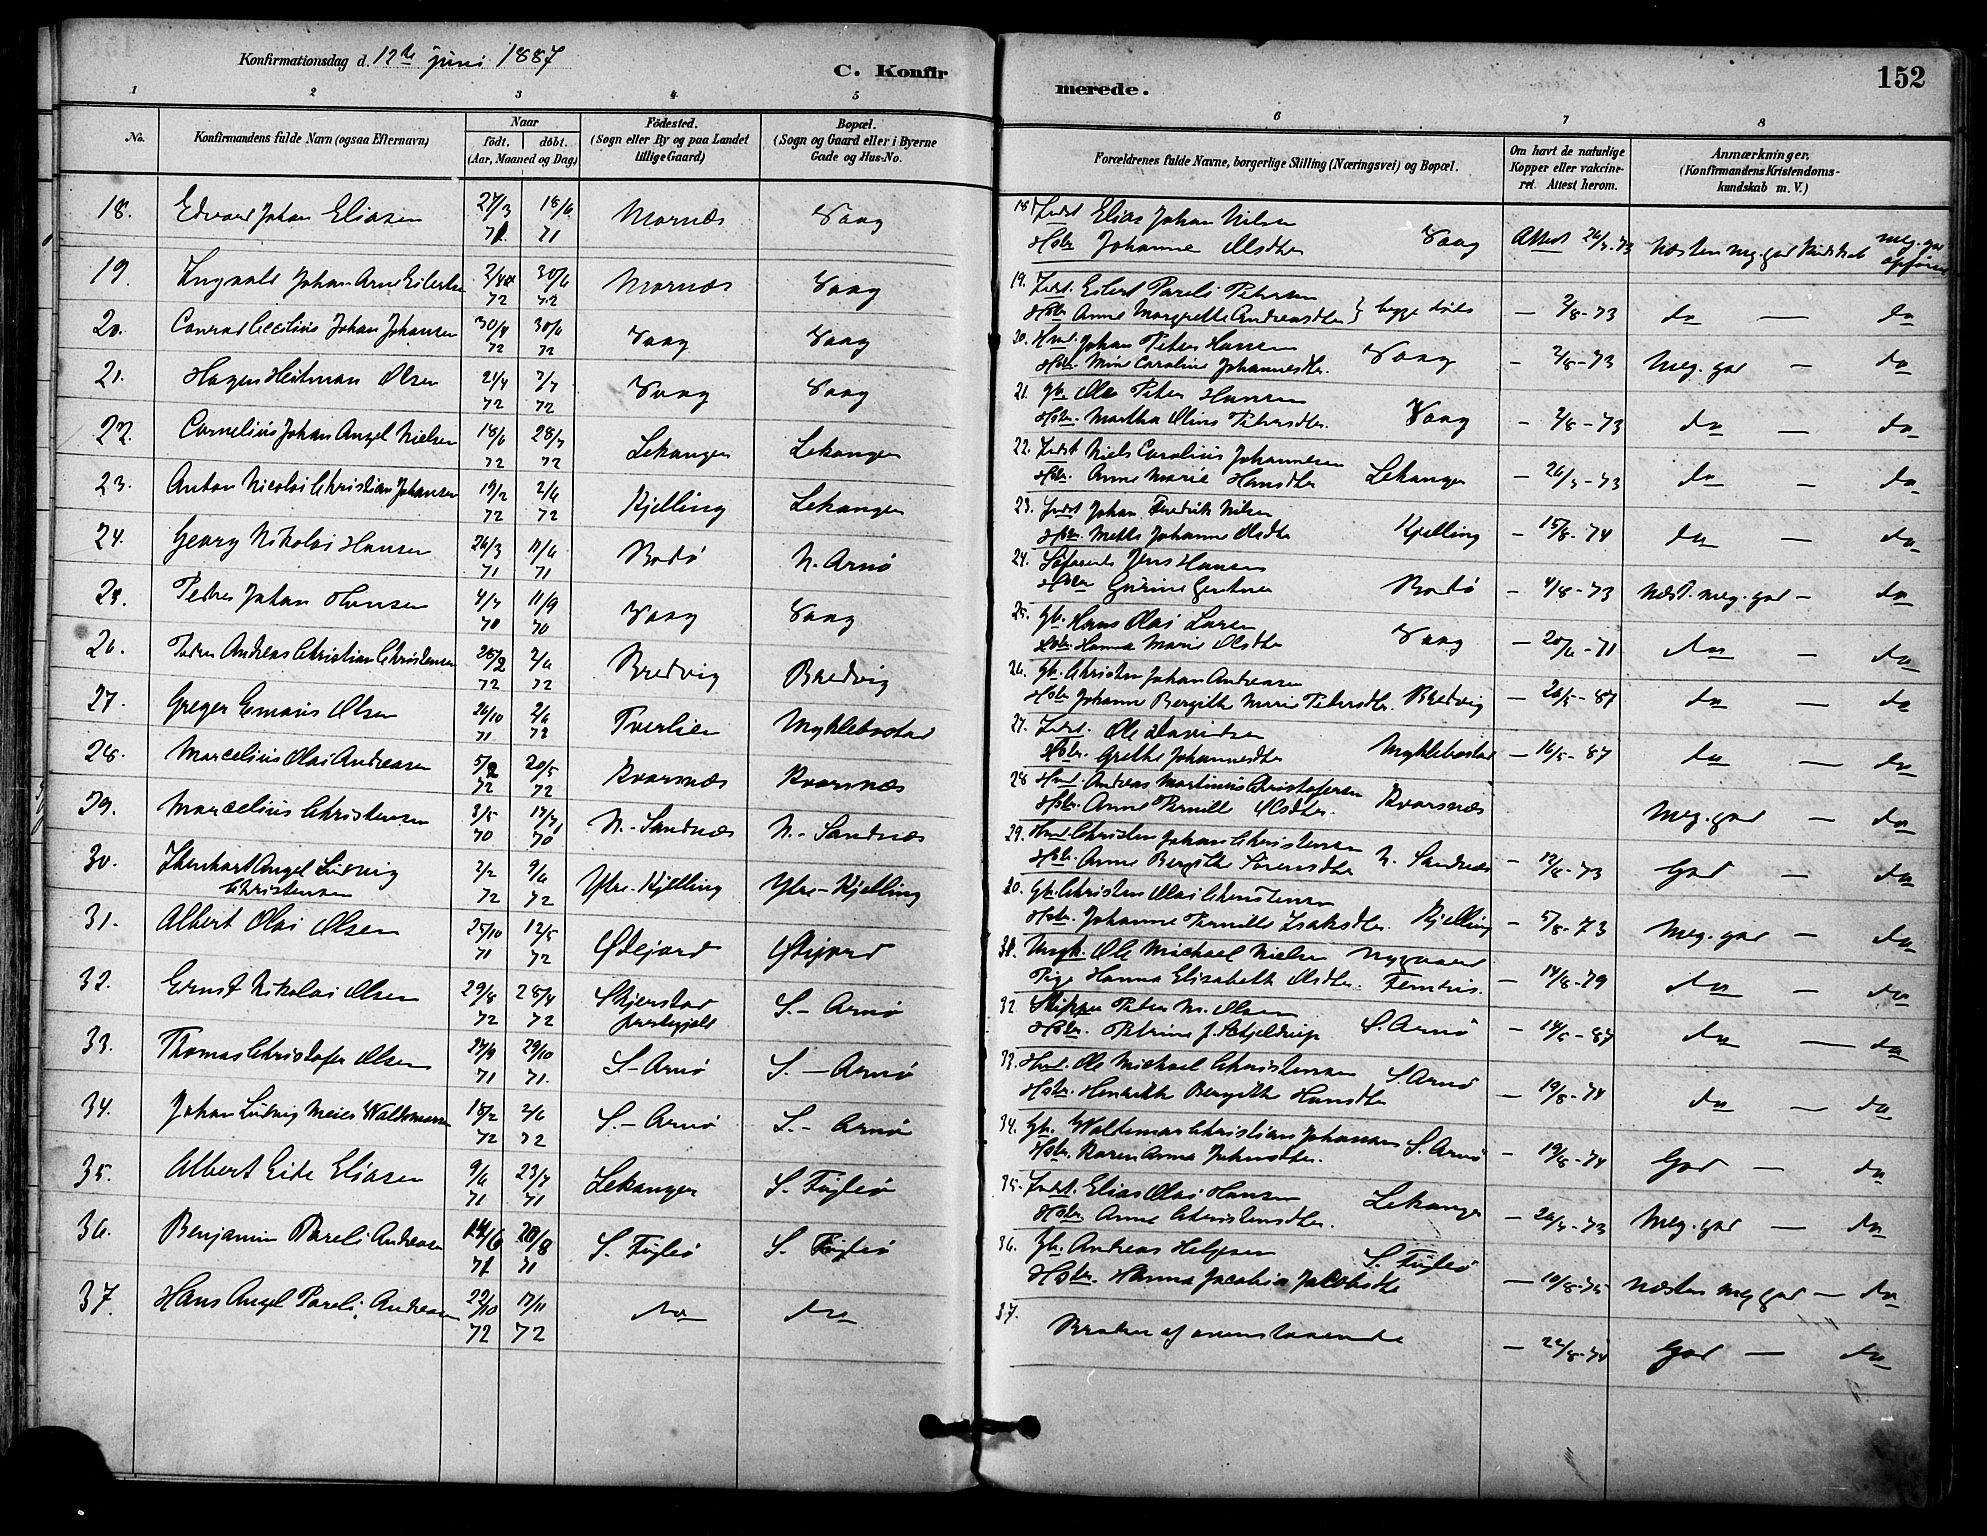 Konfirmationsdag d. 12te juni 1887
C. Konfirmerede.
152
1 2 3 4 5 6 7 8
No.
Konfirmandens fulde Navn (ogsaa Efternavn)
Naar
født. døbt.
(Aar, Maaned og Dag)
Fødested.
(Sogn eller By og paa Landet
tillige Gaard)
Bopæl.
(Sogn og Gaard eller i Byerne
Gade og Hus-No.
Forældrenes fulde Navne, borgerlige Stilling (Næringsvei) og Bopæl.
Om havt de naturlige
Kopper eller vakcine-
ret. Attest herom.
Anmærkninger,
(Konfirmandens Kristendoms-
kundskab m. V.)
18. Edvard Johan Eliasen 27/3 71 18/6 71 Mornæs Vaag
18 Indst Elias Johan Nilsen
Hstr Johanne Olsdtr Vaag Attest 26/7-73 Næsten meg. god Kundskab meg. god
19. Ingvald Johan Arnt Eilertsen 72 30/6 72 Mornæs Vaag
19. Indst. Eilert Pareli Petersen
Hstr Anne Margrethe Andreasdtr } begge døde — 2/8-73 do — do
20. Conrad Cecilius Johan Johansen 30/4 72 30/6 72 Vaag Vaag
20. Hmd. Johan Peter Hansen
Hstr. Mine Caroline Johannesdtr. Vaag — 2/8-73 Meg. god do
21. Hagen Heitman Olsen 21/4 72 7/7 72 Vaag Vaag
21. Gb. Ole Peter Hansen
Hstr. Martha Olina Petersdtr. Vaag — 2/8-73 do — do
22. Cornelius Johan Angel Nielsen 18/6 72 28/7 72 Lekangen Lekangen
22. Indst Niels Carolius Johannesen
Hstr. Anne Marie Hansdtr Lekanger — 26/7-73 do — do
23. Anton Nicolai Christian Johansen 19/2 72 2/6 72 Kjelling Lekangen
23. Indst Johan Fredrik Nilsen
Hstr. Mette Johanne Olsdtr Kjelling — 15/8-74 do — do
24. Georg Nikolai Hansen 26/3 71 11/6 71 Bodø N. Arnø
24. Jens Hansen
Bodø — 4/8-73 Næst. meg. god — do
25. Peder Johan Hansen 4/7 70 11/9 70 Vaag Vaag
25. Gb. Hans Olai Larsen
Hstr. Hanna Marie Olsdtr Vaag — 20/6-71 do — do
26. Peder Andreas Christian Christensen 25/2 72 2/6 72 Bredvig Bredvig
26. Gb. Christen Johan Andreasen
Hstr Johanne Bergithe Marie Petersdtr. Bredvig — 26/5-87 do — do
27. Greger Emaus Olsen 26/10 71 2/6 72 Tverlien Myklebostad
27. Indst. Ole Davidsen
Hstr. Grethe Johannesdtr Myklebostad — 16/5-87 do — do
28. Marcelius Olai Andreasen 5/2 72 20/5 72 Kvarsnæs Kvarsnæs
28 Hmd. Andreas Martinius Christofersen
Hstr. Anne Pernille Olsdtr. Kvarsnæs Meg. god — do
29. Marcelius Christensen 3/5 70 17/7 70 N.-Sandnæs N.-Sandnæs
29. Hmd. Christen Johan Christensen
Hstr. Anne Bergithe Sørensdtr N. Sandnæs — 12/8-73 God — do
30. Ihenhart Angel Ludvig
Christensen 2/2 72 9/6 72 Ytre-Kjelling Ytre-Kjelling
30. Gb. Christen Olai Christensen
Hstr. Johanne Pernille Isaksdtr. Kjelling — 5/8-73 Meg. god — do
31. Albert Olai Olsen 25/10 71 12/5 72
31. Ungk. Ole Michael Nielsen Nygaard
Pige Hanna Elisabeth Olsdtr. — 14/8-79 do — do
32. Ernst Nikolai Olsen 29/8 72 28/4 72 Skjerstad
præstegjeld S.- Arnø
32 Skipper Peter M. Olsen
Hstr. Petrine J. Schjeldrup S. Arnø — 14/5-87 do — do
33. Thomas Christofer Olsen 24/9 71 29/10 71. S-Arnø S.-Arnø
33. Hmd. Ole Michael Christensen
Hstr. Henrikke Bergitte Hansdtr S. Arnø — 19/8-74 do — do
34. Johan Ludvig Meier Waldemarsen 18/2 72 2/6 72 S.- Arnø S.- Arnø
34. Gb. Waldemar Christian Johansen
Hstr. Karen Anna Johnsdtr. S. Arnø — 19/8-74 God — do
35. Albert Eide Eliasen 9/6 71 23/7 71 Lekanger S. Fugleø
35. Indst. Elias Olai Hansen
Hstr Anne Christensdtr. Lekanger — 26/7-73 Meg. god — do
36. Benjamin Pareli Andreasen 14/6 71 20/8 71 S. Fugleø S. Fugleø
36. Gb. Andreas Helgesen
Hstr. Hanna Jacobia Jacobsdtr S. Fugleø — 10/8-75 Næsten Meg. god — do
37. Hans Angel Pareli Andreasen 22/10 72 17/11 72 do do
37. Broder af ovenstaaende — 22/8-74 God — do